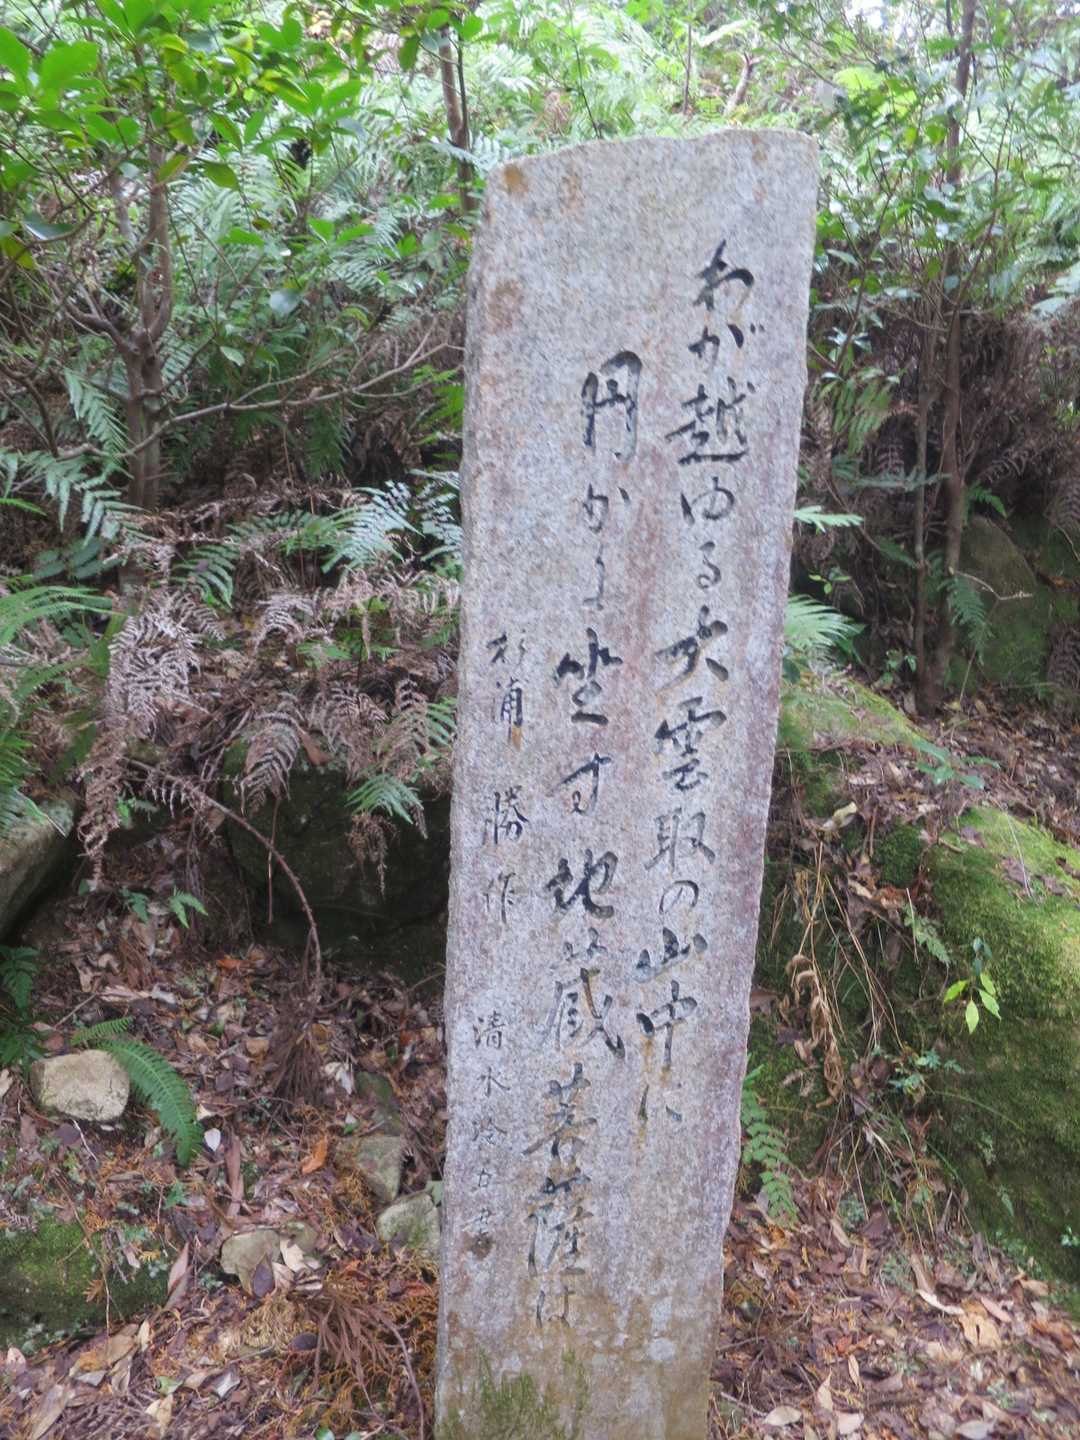 わが越ゆる大雲取の山中に
円かに坐す地蔵菩薩は
杉浦 勝作 清水 書